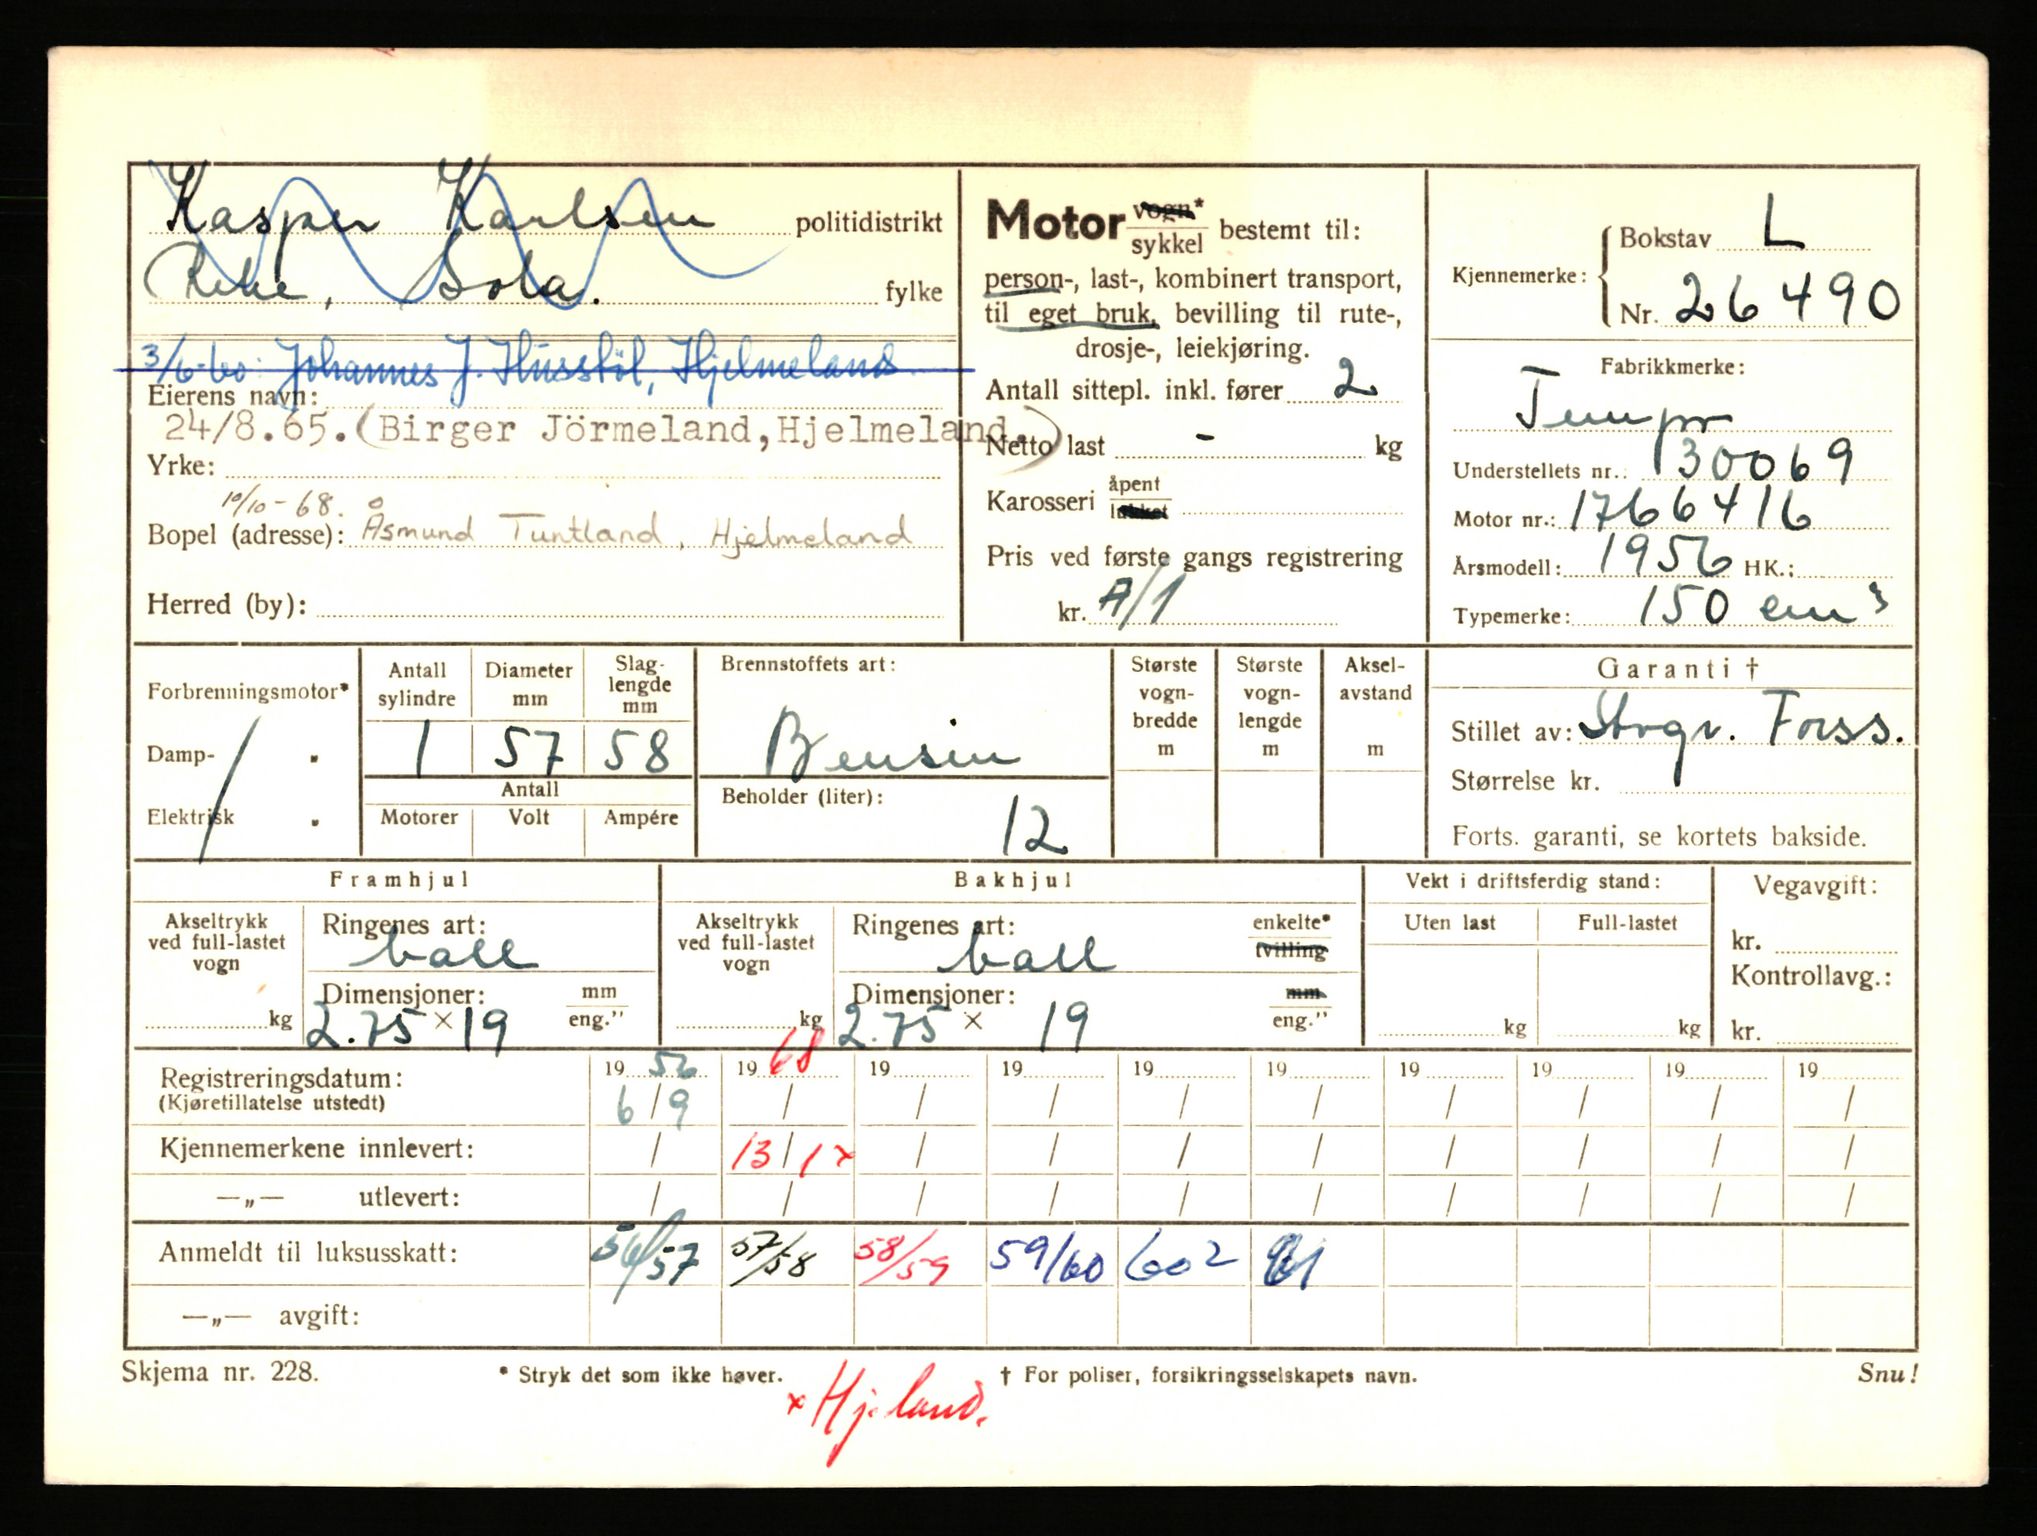 Kasper Karlsen politidistrikt
Reke, Sola. fylke
3/6-60: Johannes J. Husstöl, Hjelmeland.
Eierens navn:
24/8.65. (Birger Jörmeland, Hjelmeland.)
Yrke:
10/10-68.
Bopel (adresse): Åsmund Tuntland, Hjelmeland
Herred (by):
Motor vogn* sykkel bestemt til:
person-, last-, kombinert transport,
til eget bruk, bevilling til rute-,
drosje-, leiekjøring.
Antall sittepl. inkl. fører 2
Netto last - kg
Karosseri åpent lukket
Pris ved første gangs registrering
kr. A/1
Kjennemerke: Bokstav L
Nr. 26490
Fabrikkmerke:
Tempo
Understellets nr.: 130069
Motor nr.: 1766416
Årsmodell: 1956 HK.:
Typemerke: 150 cm³
Forbrenningsmotor*
Damp- "
Elektrisk "
Antall sylindre Diameter mm Slag-lengde mm
1 57 58
Antall
Motorer Volt Ampére
Brennstoffets art:
Bensin
Beholder (liter):
12
Største vogn-bredde m
Største vogn-lengde m
Aksel-avstand m
Garanti †
Stillet av: Storgr. Forss.
Størrelse kr.
Forts. garanti, se kortets bakside.
Framhjul
Akseltrykk ved full-lastet vogn
kg
Ringenes art:
ball
Dimensjoner: mm eng."
2.75 x 19
Bakhjul
Akseltrykk ved full-lastet vogn
kg
Ringenes art: enkelte* tvilling
ball
Dimensjoner: mm eng."
2.75 x 19
Vekt i driftsferdig stand:
Uten last Full-lastet
kg kg
Vegavgift:
kr.
Kontrollavg.:
kr.
Registreringsdatum: 19 56 19 68 19 19 19 19 19 19 19 19
(Kjøretillatelse utstedt) 6/9 / / / / / / / / /
Kjennemerkene innlevert: / 13/1 x / / / / / / / /
—„— utlevert: / / / / / / / / / /
Anmeldt til luksusskatt: 56/57 57/58 58/59 59/60 602 61
—„— avgift:
Skjema nr. 228. * Stryk det som ikke høver. † For poliser, forsikringsselskapets navn. Snu!
x Hjeland.